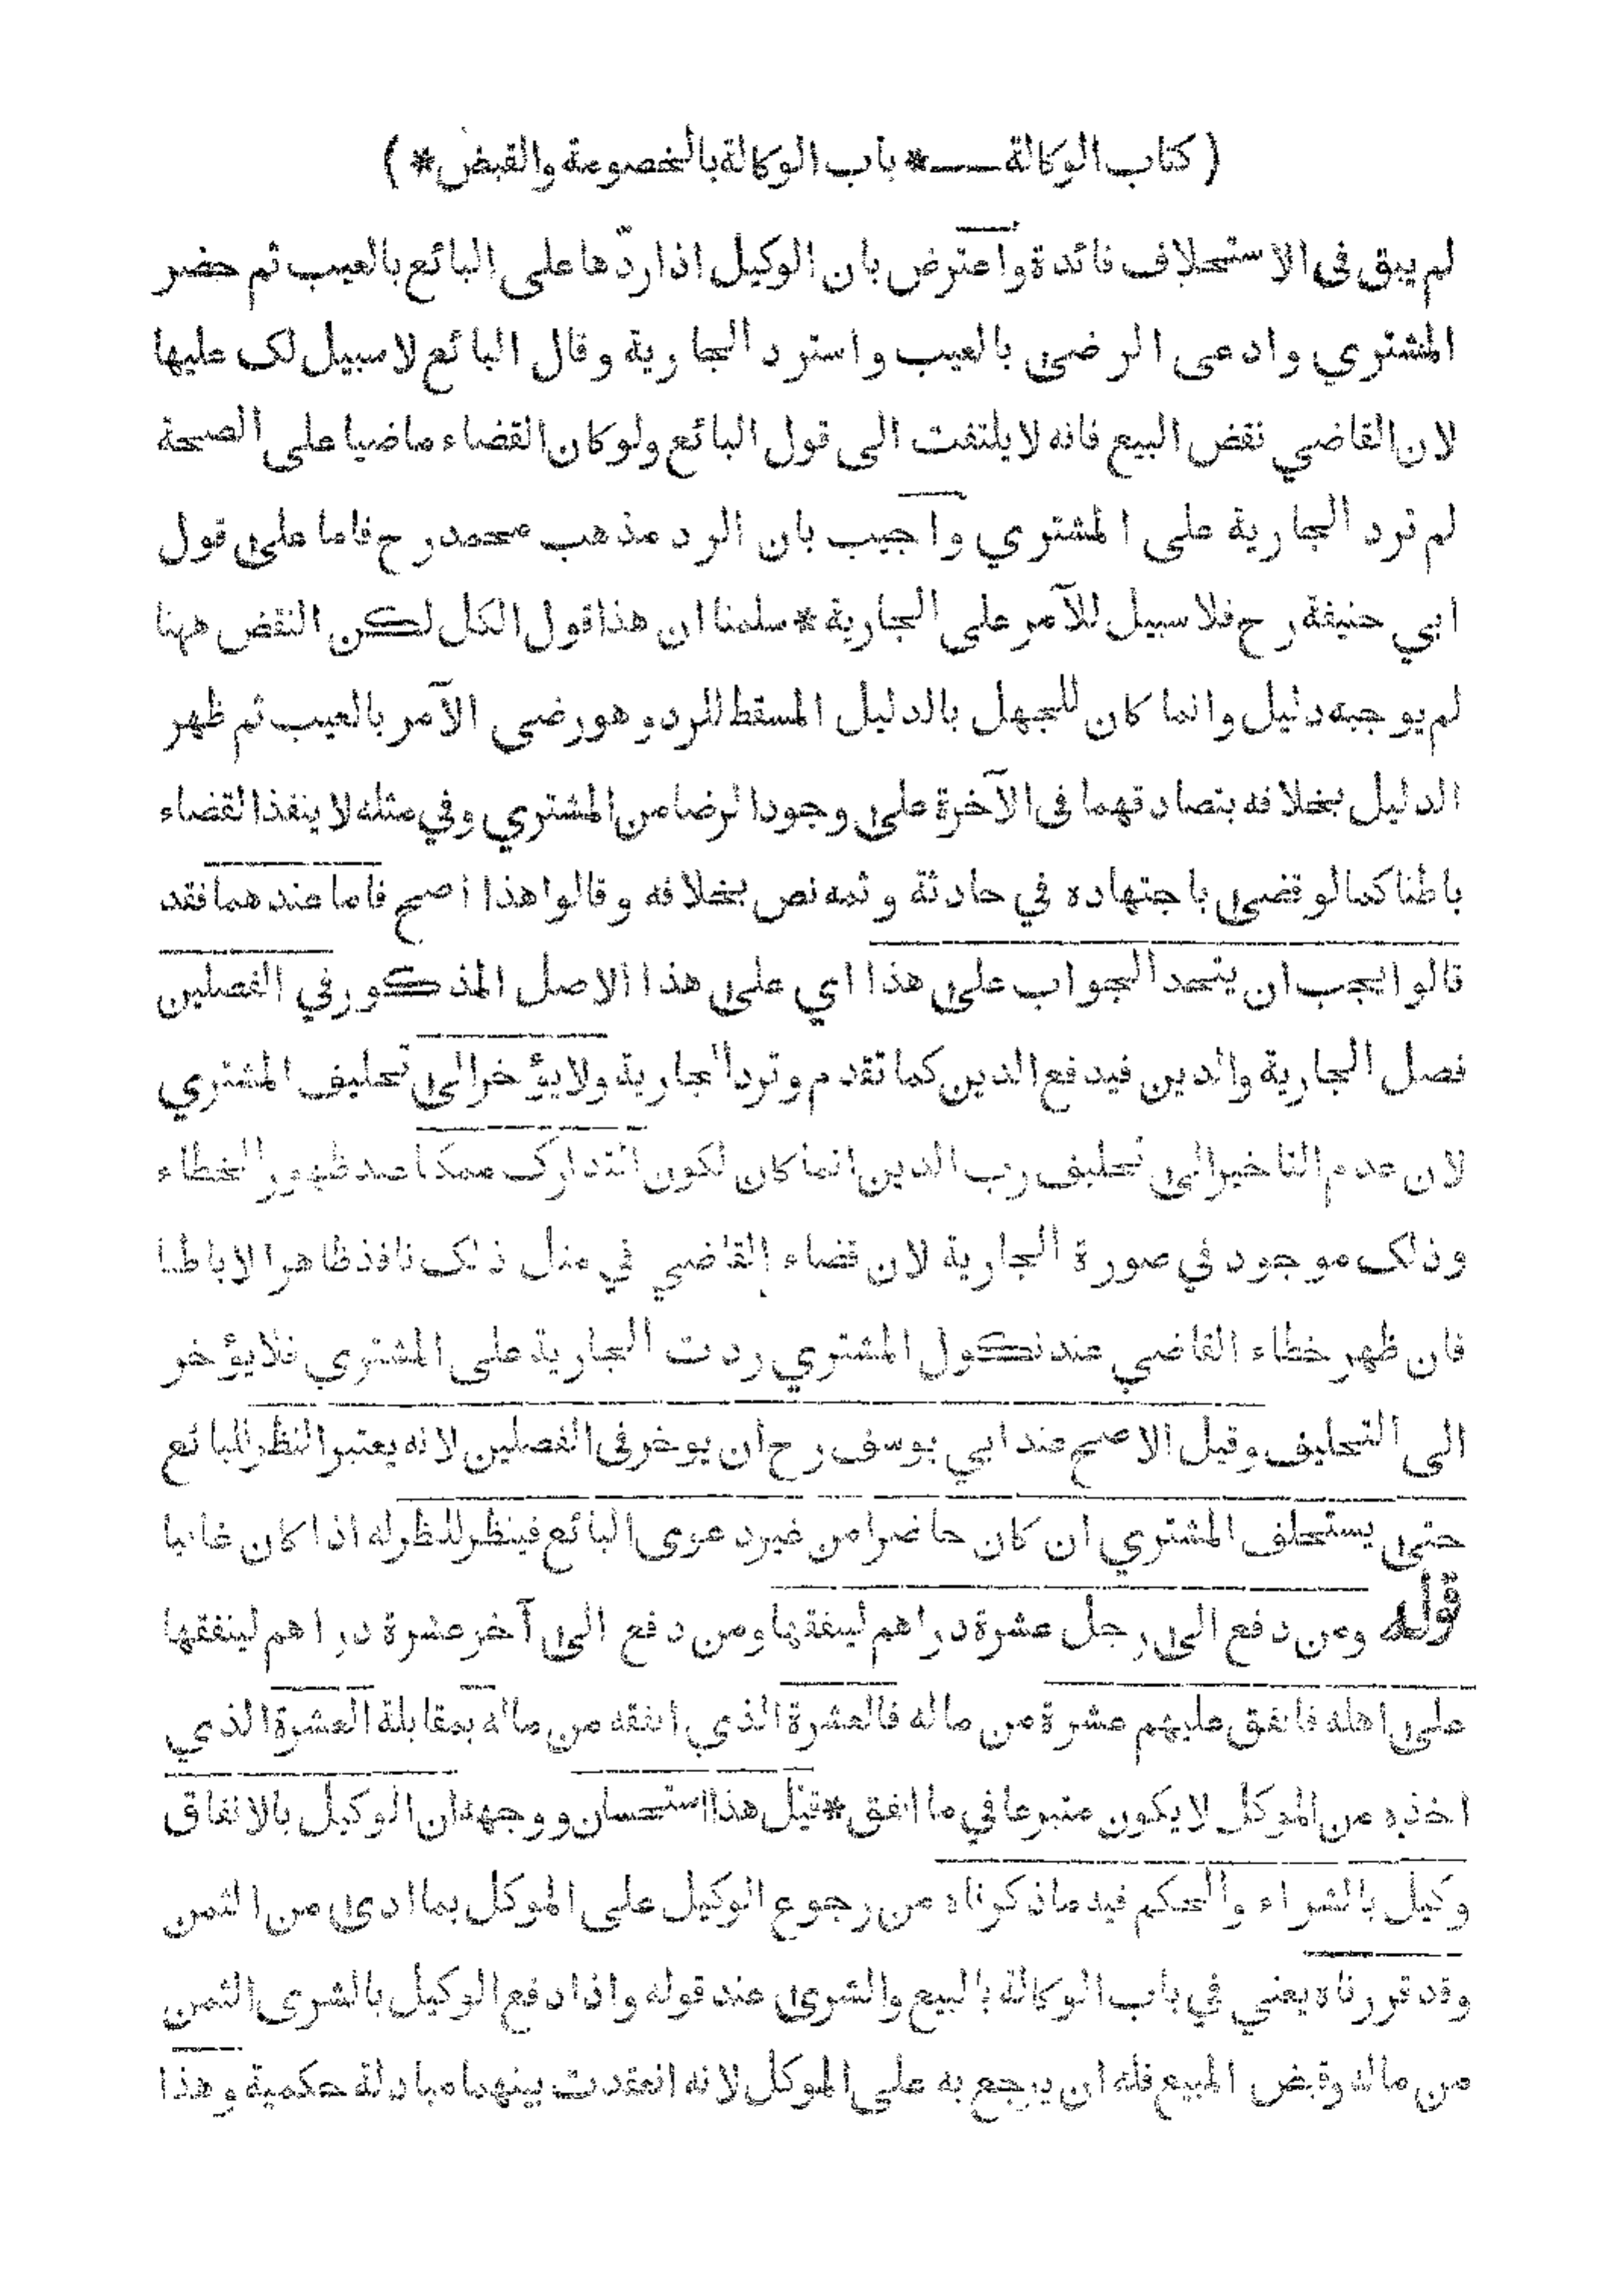 ( كتاب الوكالة ــــ * باب الوكالة بالخصومة والقبض * )
لم يبق فى الاستحلاف فائدة واعترض بان الوكيل اذا ردّها على البائع بالعيب ثم حضر
المشتري وادعى الرضى بالعيب واسترد الجارية وقال البائع لاسبيل لك عليها
لان القاضي نقض البيع فانه لايلتفت الى قول البائع ولوكان القضاء ماضيا على الصحة
لم ترد الجارية على المشتري واجيب بان الرد مذهب محمد رح فاما على قول
ابي حنيفة رح فلا سبيل للآمر على الجارية * سلمنا ان هذا قول الكل لكن النقض ههنا
لم يوجبه دليل وانما كان للجهل بالدليل المسقط للرد وهو رضى الآمر بالعيب ثم ظهر
الدليل بخلافه بتصادقهما فى الآخرة على وجود الرضا من المشتري وفي مثله لا ينفذ القضاء
باطنا كما لو قضى باجتهاده في حادثة وثمه نص بخلافه وقالوا هذا اصح فاما عندهما فقد
قالوا يجب ان يتحد الجواب على هذا اي على هذا الاصل المذكور في الفصلين
فصل الجارية والدين فيدفع الدين كما تقدم وترد الجارية ولا يؤخر الى تحليف المشتري
لان عدم التاخير الى تحليف رب الدين انما كان لكون التدارك ممكنا عند ظهور الخطاء
وذلك موجود في صورة الجارية لان قضاء القاضي في مثل ذلك نافذ ظاهرا لا باطنا
فان ظهر خطاء القاضي عند نكول المشتري ردت الجارية على المشتري فلا يؤخر
الى التحليف وقيل الاصح عند ابي يوسف رح ان يوخر فى الفصلين لانه يعتبر النظر للبائع
حتى يستحلف المشتري ان كان حاضرا من غير دعوى البائع فينظر للنظر له اذا كان غائبا
قوله ومن دفع الى رجل عشرة دراهم لينفقها ومن دفع الى آخر عشرة دراهم لينفقها
على اهله فانفق عليهم عشرة من ماله فالعشرة الذي انفقه من ماله بمقابلة العشرة الذي
اخذه من الموكل لا يكون متبرعا في ما انفق * قيل هذا استحسان ووجهه ان الوكيل بالانفاق
وكيل بالشراء والحكم فيه ما ذكرناه من رجوع الوكيل على الموكل بما ادى من الثمن
وقد قررناه يعني في باب الوكالة بالبيع والشرى عند قوله واذا دفع الوكيل بالشرى الثمن
من ماله وقبض المبيع فله ان يرجع به على الموكل لانه انعقدت بينهما مبادلة حكمية وهذا